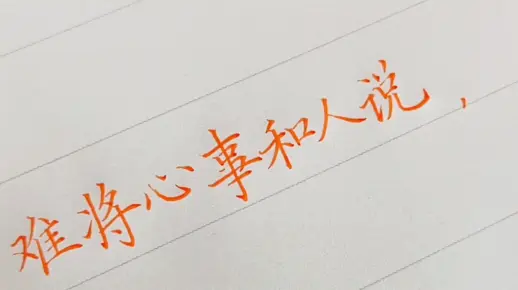 难将心事和人说，